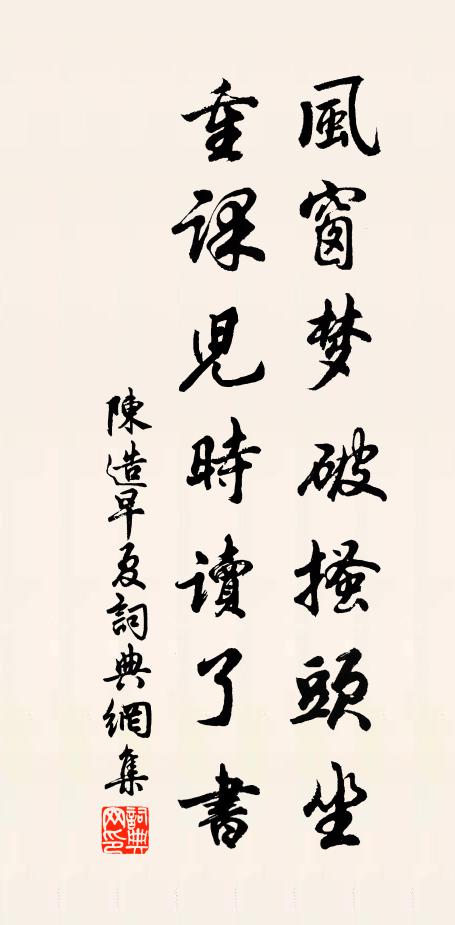 風窗梦破搔頭坐
重課兒時讀了書
陳造早夏詞典網集
詞典网印